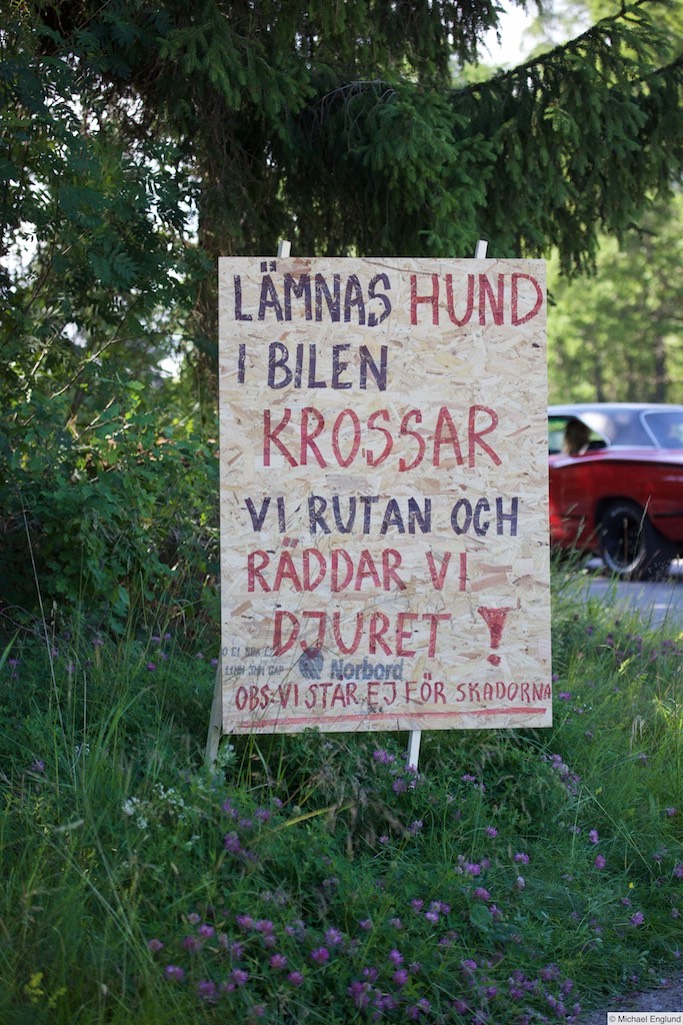 LÄMNAS HUND
I BILEN
KROSSAR
VI RUTAN OCH
RÄDDAR VI
DJURET !
Norbord
OBS: VI STAR EJ FÖR SKADORNA
© Michael Englund